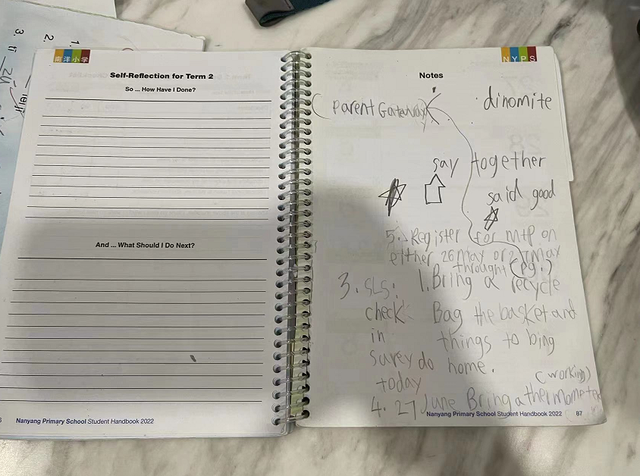 南洋小学
Self-Reflection for Term 2
So ... How Have I Done?
And ... What Should I Do Next?
Nanyang Primary School Student Handbook 2022
NYPS
Notes
Parent Gateway
dinomite
say together
said good
5. Register for mtp on
either 26 may or 27 may
throught (pg.)
1. Bring a recycle
Bag the basket and
things to bing
home.
3. SLS:
check
in
survey do
today
(working)
4. 27 June Bring a thermometre
Nanyang Primary School Student Handbook 2022 87